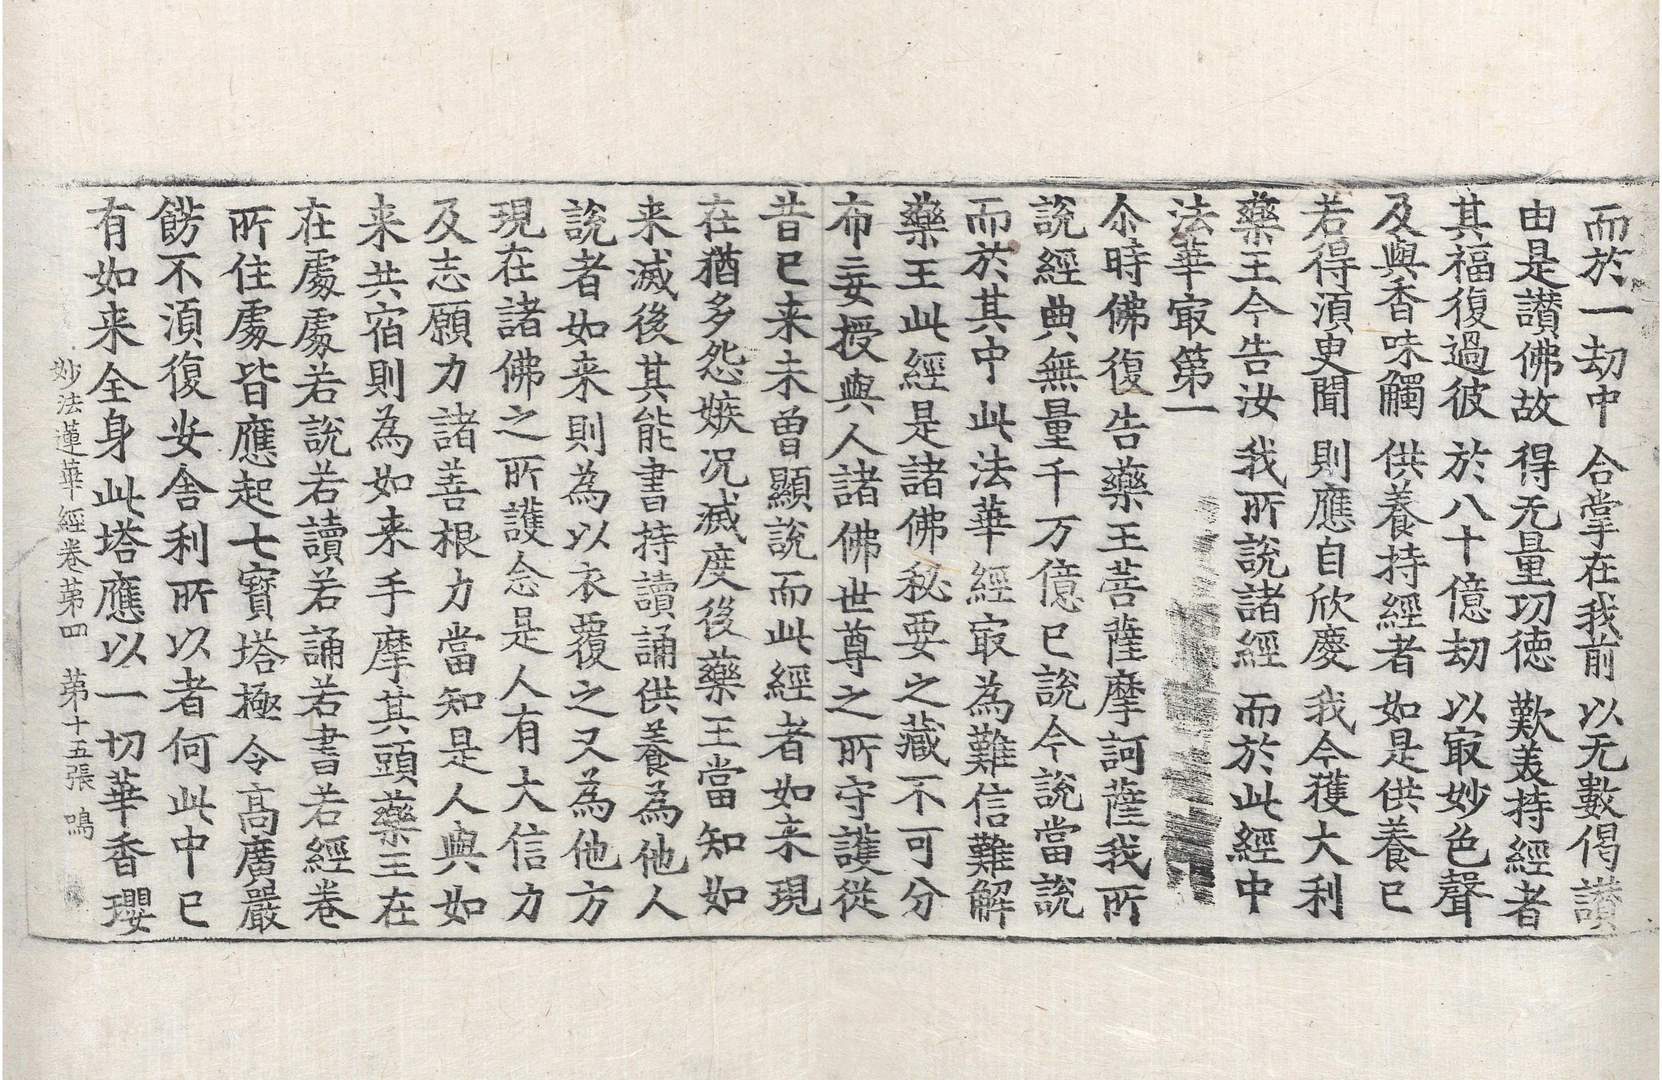 而於一劫中 合掌在我前 以无數偈讃
由是讃佛故 得无量功徳 歎美持經者
其福復過彼 於八十億劫 以㝡妙色聲
及與香味觸 供養持經者 如是供養已
若得湏臾聞 則應自欣慶 我今獲大利
藥王今告汝 我所説諸經 而於此經中
法華㝡第一
尒時佛復告藥王菩薩摩訶薩我所
説經典無量千万億已説今説當説
而於其中此法華經㝡為難信難解
藥王此經是諸佛秘要之藏不可分
布妄授與人諸佛世尊之所守護從
昔已来未曾顯説而此經者如来現
在猶多怨嫉况滅度後藥王當知如
来滅後其能書持讀誦供養為他人
説者如来則為以衣覆之又為他方
現在諸佛之所護念是人有大信力
及志願力諸善根力當知是人與如
来共宿則為如来手摩其頭藥王在
在處處若説若讀若誦若書若經卷
所住處皆應起七寳塔極令高廣嚴
餝不湏復安舍利所以者何此中已
有如来全身此塔應以一切華香瓔
妙法蓮華經卷苐四 苐十五張 鳴